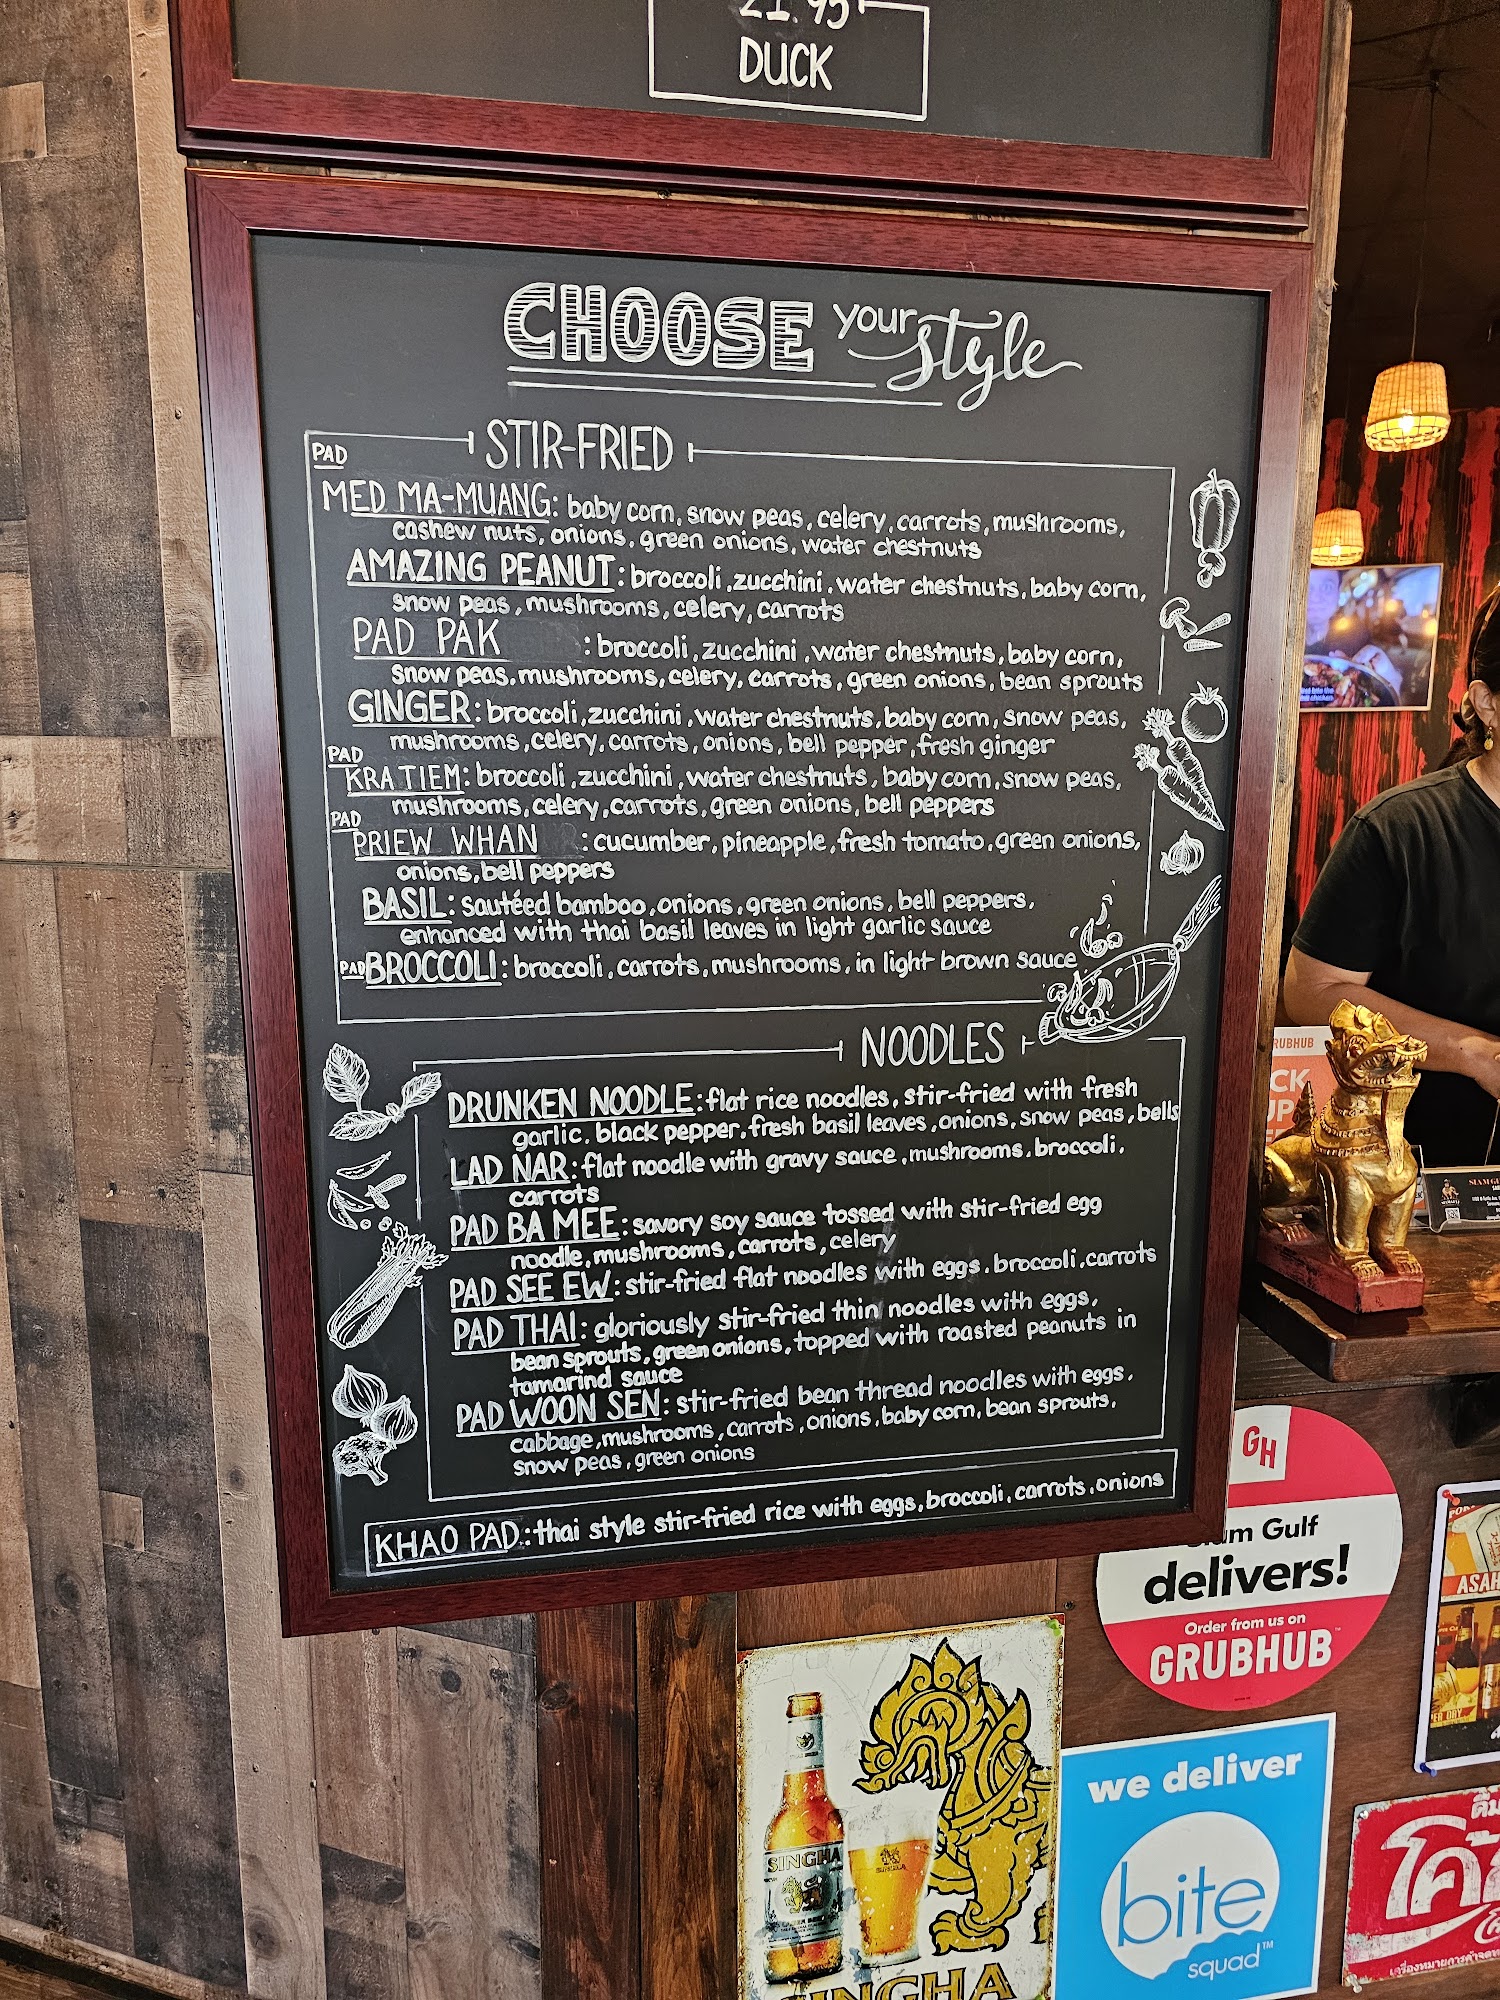 21.95
DUCK
CHOOSE your style
STIR-FRIED
PAD
MED MA-MUANG: baby corn, snow peas, celery, carrots, mushrooms,
cashew nuts, onions, green onions, water chestnuts
AMAZING PEANUT: broccoli, zucchini, water chestnuts, baby corn,
snow peas, mushrooms, celery, carrots
PAD PAK : broccoli, zucchini, water chestnuts, baby corn,
snow peas, mushrooms, celery, carrots, green onions, bean sprouts
GINGER: broccoli, zucchini, water chestnuts, baby corn, snow peas,
mushrooms, celery, carrots, onions, bell pepper, fresh ginger
PAD
KRA TIEM: broccoli, zucchini, water chestnuts, baby corn, snow peas,
mushrooms, celery, carrots, green onions, bell peppers
PAD
PRIEW WHAN : cucumber, pineapple, fresh tomato, green onions,
onions, bell peppers
BASIL: sautéed bamboo, onions, green onions, bell peppers,
enhanced with thai basil leaves in light garlic sauce
PAD BROCCOLI: broccoli, carrots, mushrooms, in light brown sauce
NOODLES
DRUNKEN NOODLE: flat rice noodles, stir-fried with fresh
garlic, black pepper, fresh basil leaves, onions, snow peas, bells
LAD NAR: flat noodle with gravy sauce, mushrooms, broccoli,
carrots
PAD BA MEE: savory soy sauce tossed with stir-fried egg
noodle, mushrooms, carrots, celery
PAD SEE EW: stir-fried flat noodles with eggs, broccoli, carrots
PAD THAI: gloriously stir-fried thin noodles with eggs,
bean sprouts, green onions, topped with roasted peanuts in
tamarind sauce
PAD WOON SEN: stir-fried bean thread noodles with eggs,
cabbage, mushrooms, carrots, onions, baby corn, bean sprouts,
snow peas, green onions
KHAO PAD: thai style stir-fried rice with eggs, broccoli, carrots, onions
RUBHUB
CK
UP
SIAM GU
GH
Gulf
delivers!
Order from us on
GRUBHUB
ASAH
SINGHA
SINGHA
we deliver
bite
squad™
โค้